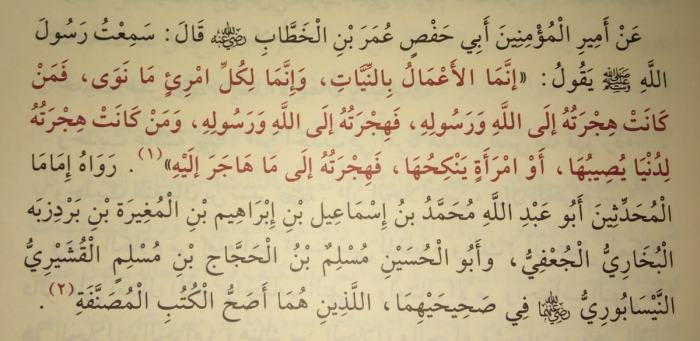 عَنْ أَمِيرِ الْمُؤْمِنِينَ أَبِي حَفْصٍ عُمَرَ بْنِ الْخَطَّابِ رضي الله عنه قَالَ: سَمِعْتُ رَسُولَ
اللَّهِ ﷺ يَقُولُ: «إِنَّمَا الأَعْمَالُ بِالنِّيَّاتِ، وَإِنَّمَا لِكُلِّ امْرِئٍ مَا نَوَى، فَمَنْ
كَانَتْ هِجْرَتُهُ إِلَى اللَّهِ وَرَسُولِهِ، فَهِجْرَتُهُ إِلَى اللَّهِ وَرَسُولِهِ، وَمَنْ كَانَتْ هِجْرَتُهُ
لِدُنْيَا يُصِيبُهَا، أَوْ امْرَأَةٍ يَنْكِحُهَا، فَهِجْرَتُهُ إِلَى مَا هَاجَرَ إِلَيْهِ»(١). رَوَاهُ إِمَامَا
الْمُحَدِّثِينَ أَبُو عَبْدِ اللَّهِ مُحَمَّدُ بنُ إِسْمَاعِيل بْنِ إِبْرَاهِيم بْنِ الْمُغِيرَة بْنِ بَرْدِزبَه
الْبُخَارِيُّ الْجُعْفِيُّ، وَأَبُو الْحُسَيْنِ مُسْلِمٌ بْنُ الْحَجَّاج بْنِ مُسْلِمٍ الْقُشَيْرِيُّ
النَّيْسَابُورِيُّ رضي الله عنهما فِي صَحِيحَيْهِمَا، اللَّذِينِ هُمَا أَصَحُّ الْكُتُبِ الْمُصَنَّفَةِ(٢).